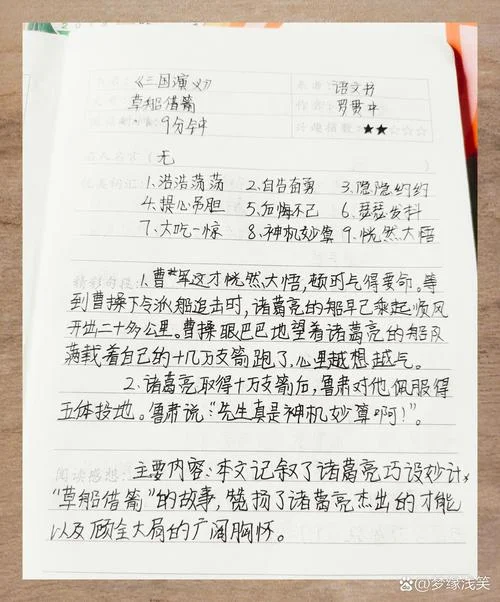 《三国演义》 来源: 语文书
草船借箭 罗贯中
9分钟 兴趣指数: ★★☆☆☆
名人名言(无
优美词汇: 1、浩浩荡荡 2、自告奋勇 3、隐隐约约
4、提心吊胆 5、后悔不己 6、瑟瑟发抖
7、大吃一惊 8、神机妙算 9、恍然大悟
精彩句段: 1、曹军这才恍然大悟,顿时气得要命。等
到曹操下令派船追击时,诸葛亮的船早已乘起顺风
开出二十多公里。曹操眼巴巴地望着诸葛亮的船只
满载着自己的十几万支箭跑了,心里越想越气。
2、诸葛亮取得十万支箭后,鲁肃对他佩服得
五体投地。鲁肃说:“先生真是神机妙算啊!”。
阅读感想: 主要内容、本文记叙了诸葛亮巧设妙计,
“草船借箭”的故事,赞扬了诸葛亮杰出的才能
以及顾全大局的广阔胸怀。
Baidu百家号@梦缘浅笑